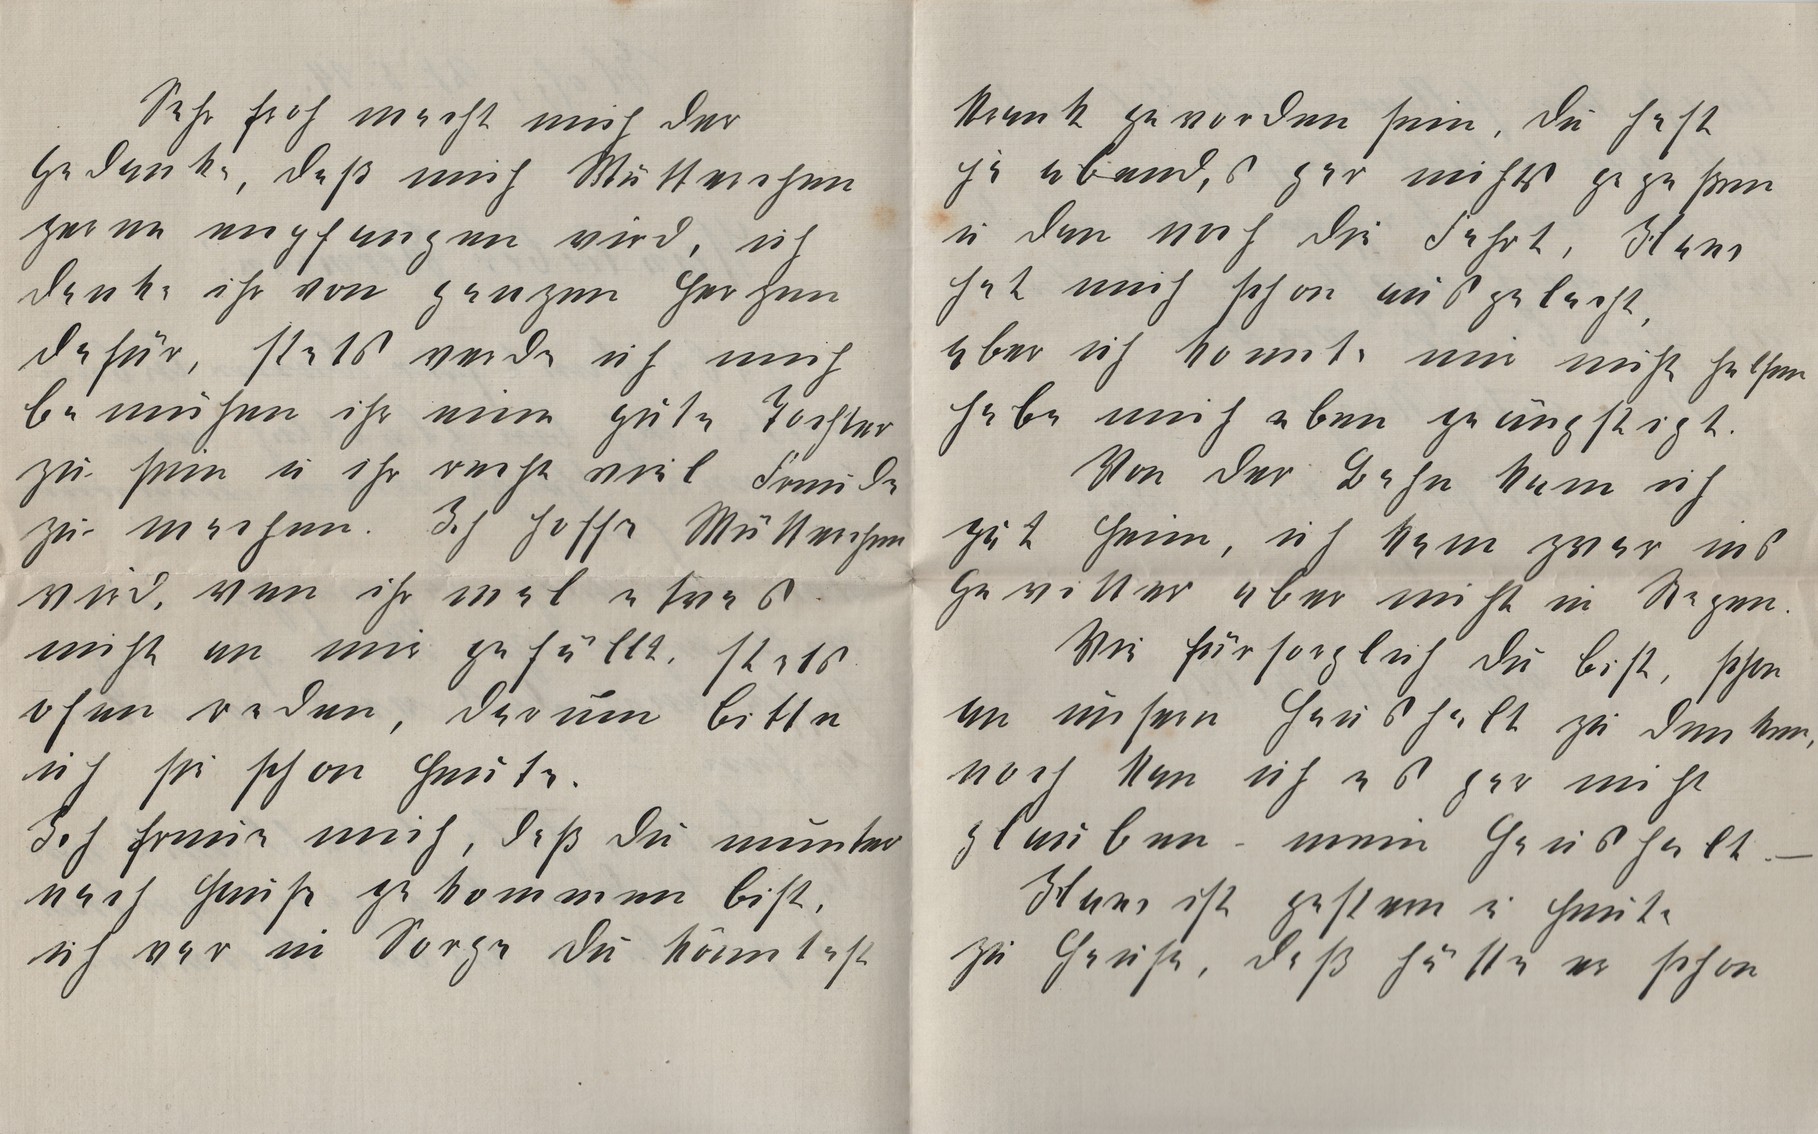 Sehr froh macht mich der
Gedanke, daß mich Mütterchen
gerne empfangen wird, ich
danke ihr von ganzen Herzen
dafür, stets werde ich mich
bemühen ihr eine gute Tochter
zu sein u ihr recht viel Freude
zu machen. Ich hoffe Mütterchen
wird, wen ihr mal etwas
nicht an mir gefällt, stets
ofen reden, darum bitte
ich sie schon heute.
Ich freue mich, daß Du munter
nach Hause gekommen bist,
ich war in Sorge Du könntest
krank geworden sein, Du hast
ja abend,s gar nichts gegessen
u dan noch die Fahrt, Hans
hat mich schon ausgelacht,
aber ich konnte mir nicht helfen
habe mich eben geängstigt.
Von der Bahn kam ich
gut heim, ich kam zwar ins
Gewitter aber nicht in Regen.
Wie fürsorglich Du bist, schon
an unsern Haushalt zu denken,
noch kan ich es gar nicht
glauben - mein Haushalt. —
Hans ist gestern u heute
zu Hause, daß hätte er schon